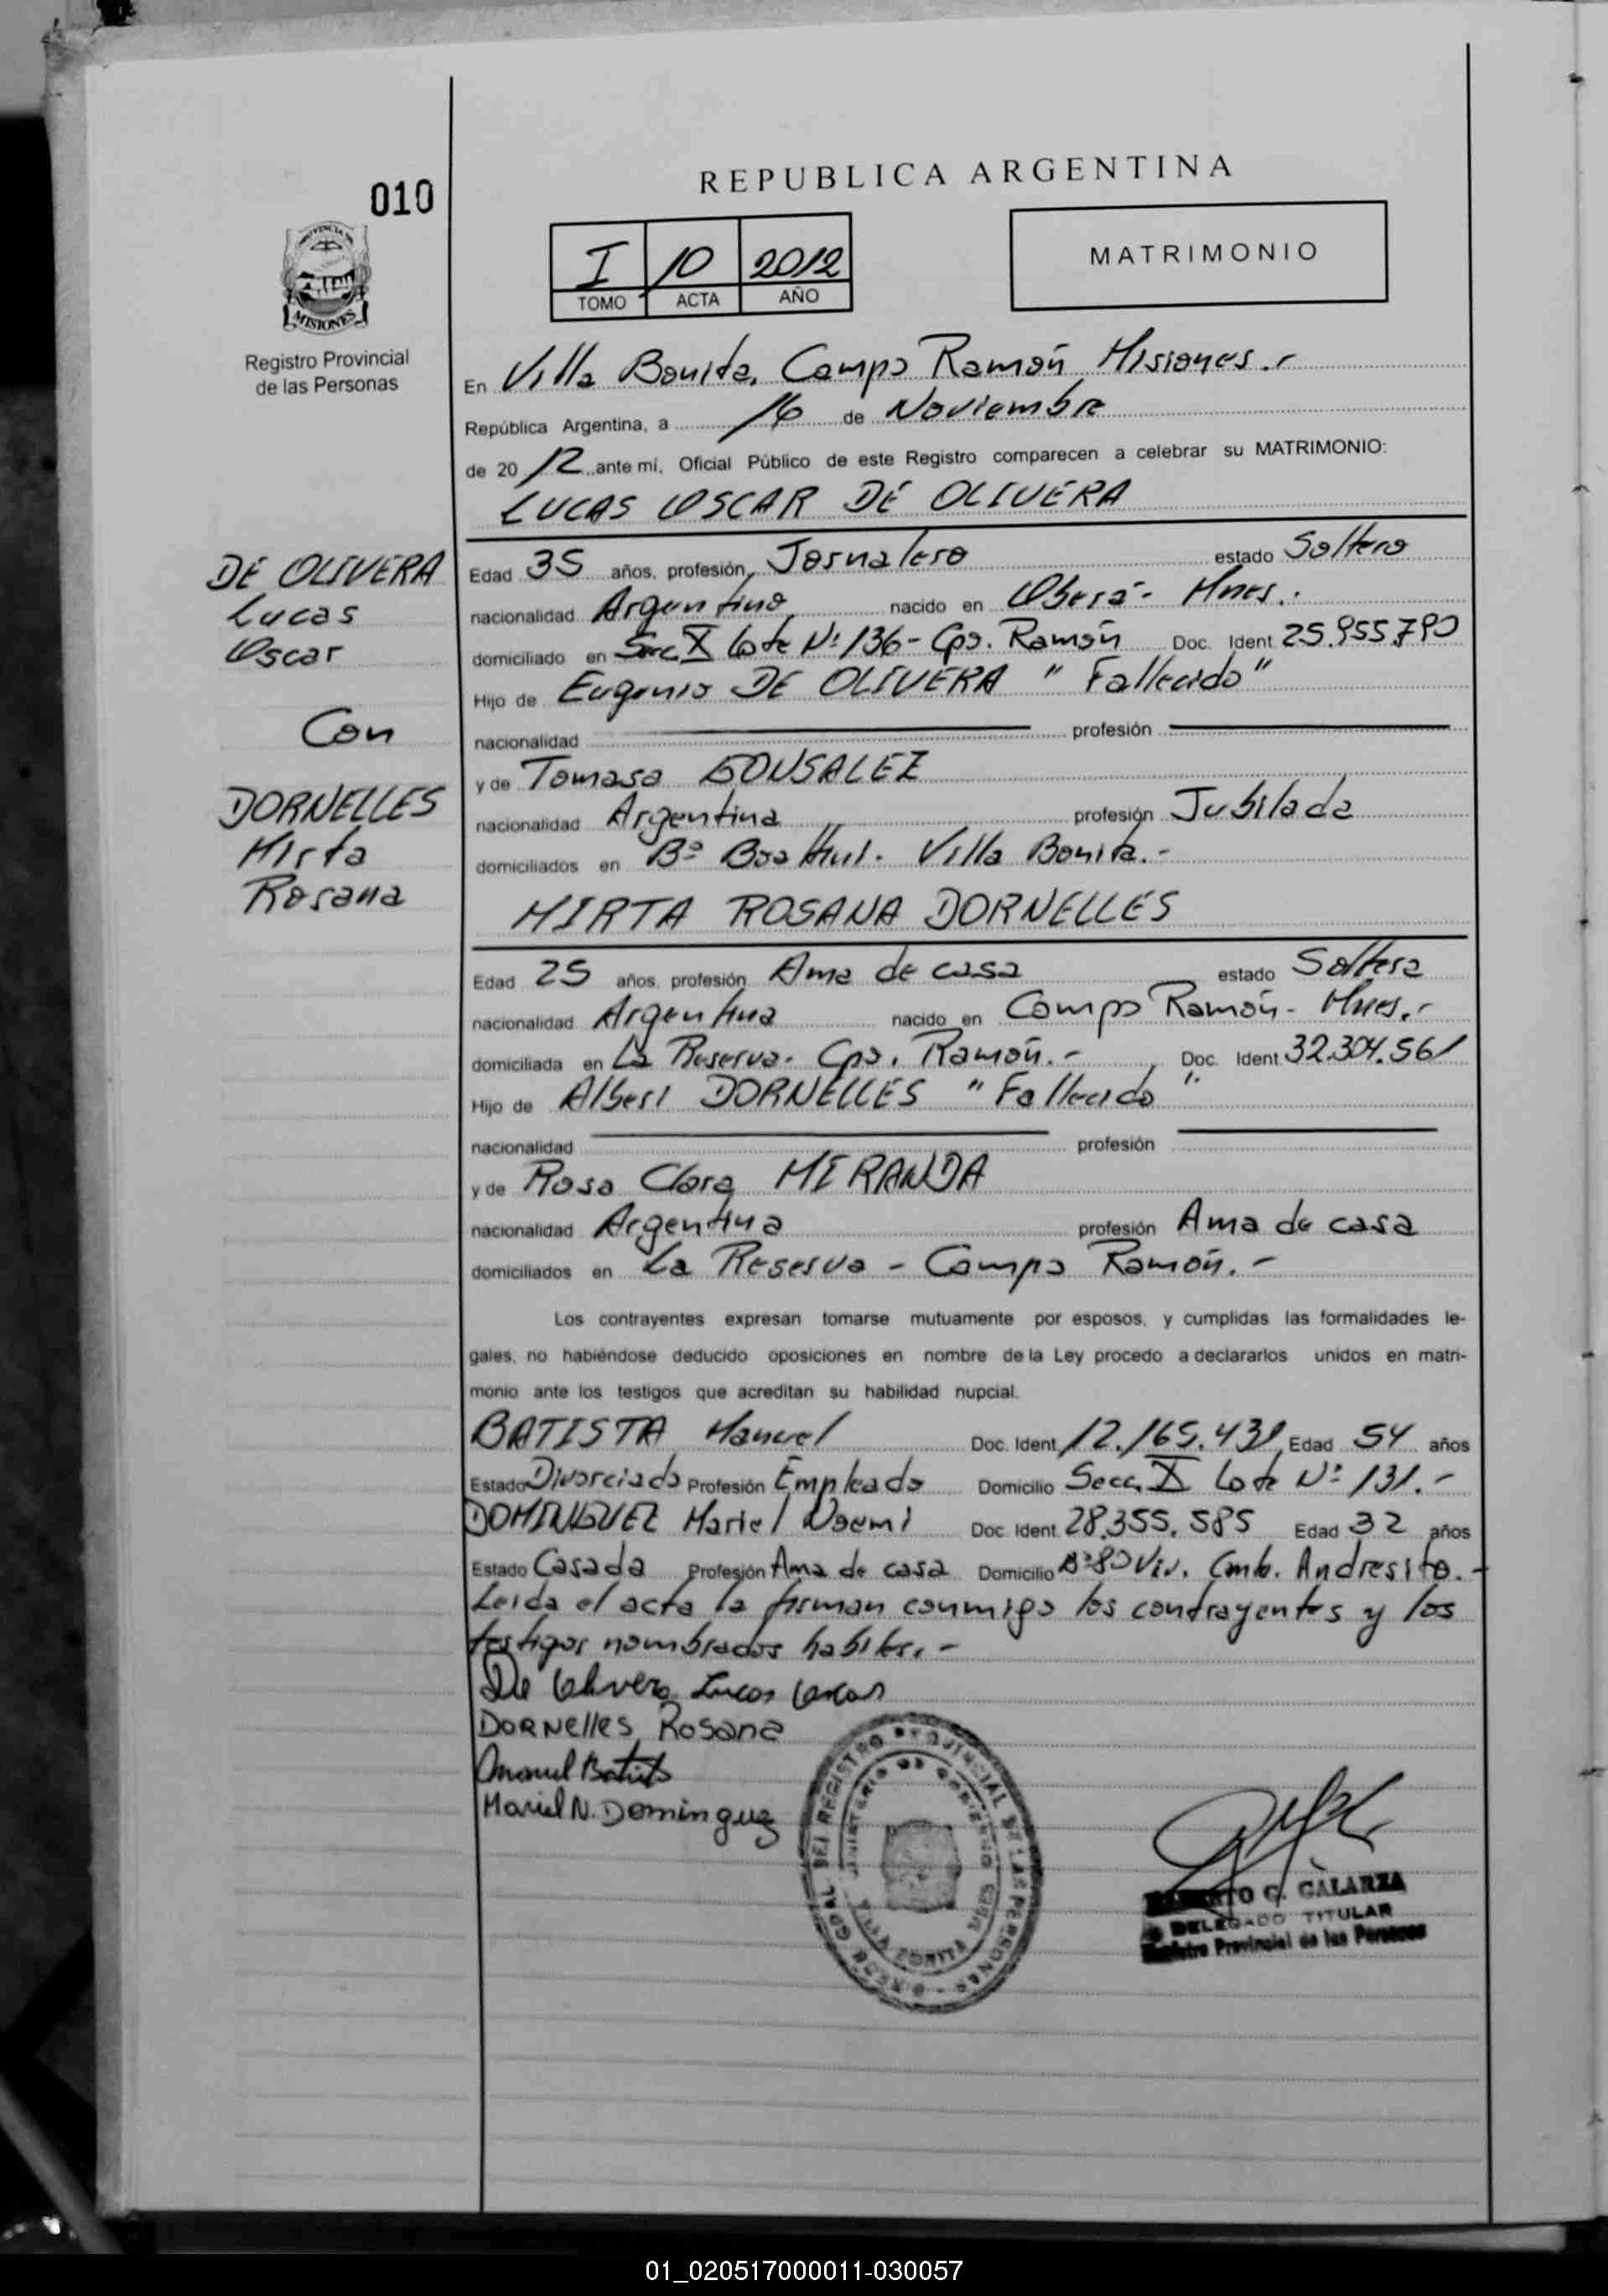 010
REPUBLICA ARGENTINA
I 10 2012
TOMO ACTA AÑO
MATRIMONIO
PROVINCIA DE
MISIONES
Registro Provincial
de las Personas
En Villa Bonita, Campo Ramón Misiones.-
República Argentina, a 16 de Noviembre
de 2012 ante mí, Oficial Público de este Registro comparecen a celebrar su MATRIMONIO:
LUCAS OSCAR DE OLIVERA
DE OLIVERA
Lucas
Oscar
Con
DORNELLES
Mirta
Rosana
Edad 35 años, profesión, Jornalero estado Soltero
nacionalidad Argentino nacido en Oberá- Mnes.-
domiciliado en Secc. X Lote Nº 136- Cpo. Ramón Doc. Ident. 25.955.790
Hijo de Eugenio DE OLIVERA "Fallecido"
nacionalidad profesión
y de Tomasa GONSALEZ
nacionalidad Argentina profesión Jubilada
domiciliados en Bº Villa Bonita.-
MIRTA ROSANA DORNELLES
Edad 25 años, profesión Ama de casa estado Soltera
nacionalidad Argentina nacido en Campo Ramón- Mnes.-
domiciliada en La Reserva- Cpo. Ramón.- Doc. Ident. 32.304.561
Hijo de Alberi DORNELLES "Fallecido".
nacionalidad profesión
y de Rosa Clara MIRANDA
nacionalidad Argentina profesión Ama de casa
domiciliados en La Reserva - Campo Ramón.-
Los contrayentes expresan tomarse mutuamente por esposos, y cumplidas las formalidades le-
gales, no habiéndose deducido oposiciones en nombre de la Ley procedo a declararlos unidos en matri-
monio ante los testigos que acreditan su habilidad nupcial.
BATISTA Manuel Doc. Ident. 12.165.431 Edad 54 años
Estado Divorciado Profesión Empleado Domicilio Secc. X Lote Nº 131.-
DOMINGUEZ Mariel Noemi Doc. Ident. 28.355.585 Edad 32 años
Estado Casada Profesión Ama de casa Domicilio Bº 80 Viv. Cmte. Andresito.-
Leida el acta la firman conmigo los contrayentes y los
testigos nombrados habiles.-
De Olivera Lucas Oscar
DORNElles Rosana
Manuel Batista
Mariel N. Dominguez
DEL REGISTRO PROVINCIAL DE LAS PERSONAS - DIRECN GRAL
MINISTERIO DE GOBIERNO
VILLA BONITA MNES
G. GALARZA
DELEGADO TITULAR
Registro Provincial de las Personas
01_020517000011-030057